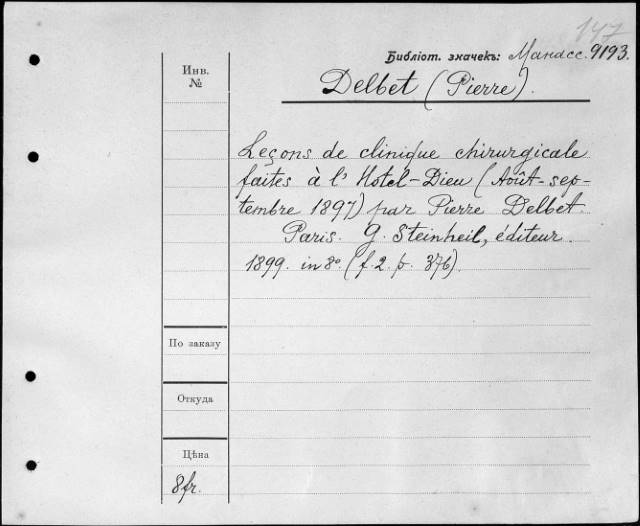 147
Библіот. значекъ: Манасс. 9193.
Инв.
№
Delbet (Pierre).
Leçons de clinique chirurgicale
faites à l'Hotel-Dieu (Août-sep-
tembre 1897) par Pierre Delbet.
Paris. G. Steinheil, éditeur.
1899. in 8º. (f. 2. p. 376).
По заказу
Откуда
Цѣна
8 fr.